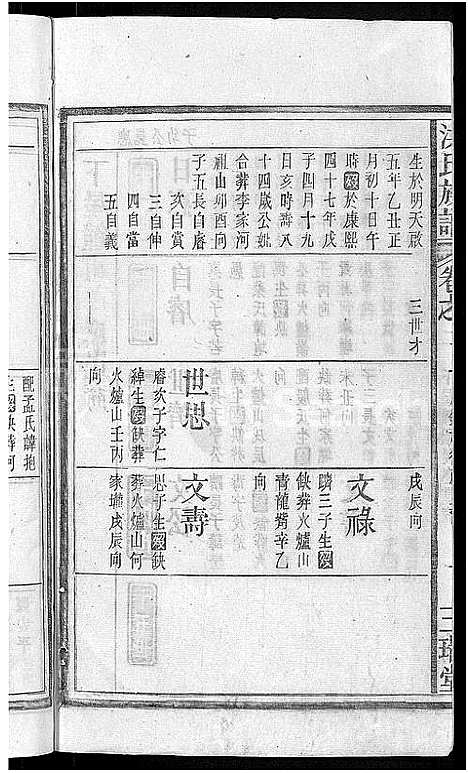 氏族譜
卷之
三世才
三瑞堂
生於明天啟
五年乙丑正
月初十日午
時歿於康熙
四十七年戊
子四月十九
日亥時壽八
十四歲公妣
合葬李家河
祖山卯酉向
子五長自睿
次自賞
三自伸
四自當
五自義
世思
睿次子字仁
綽生歿缺葬
火爐山壬丙
向
戌辰向
文祿
麟三子生歿
缺葬火爐山
青龍嘴辛乙
向
文壽
思子生歿缺
葬火爐山何
家壠戌辰向
配孟氏諱抱